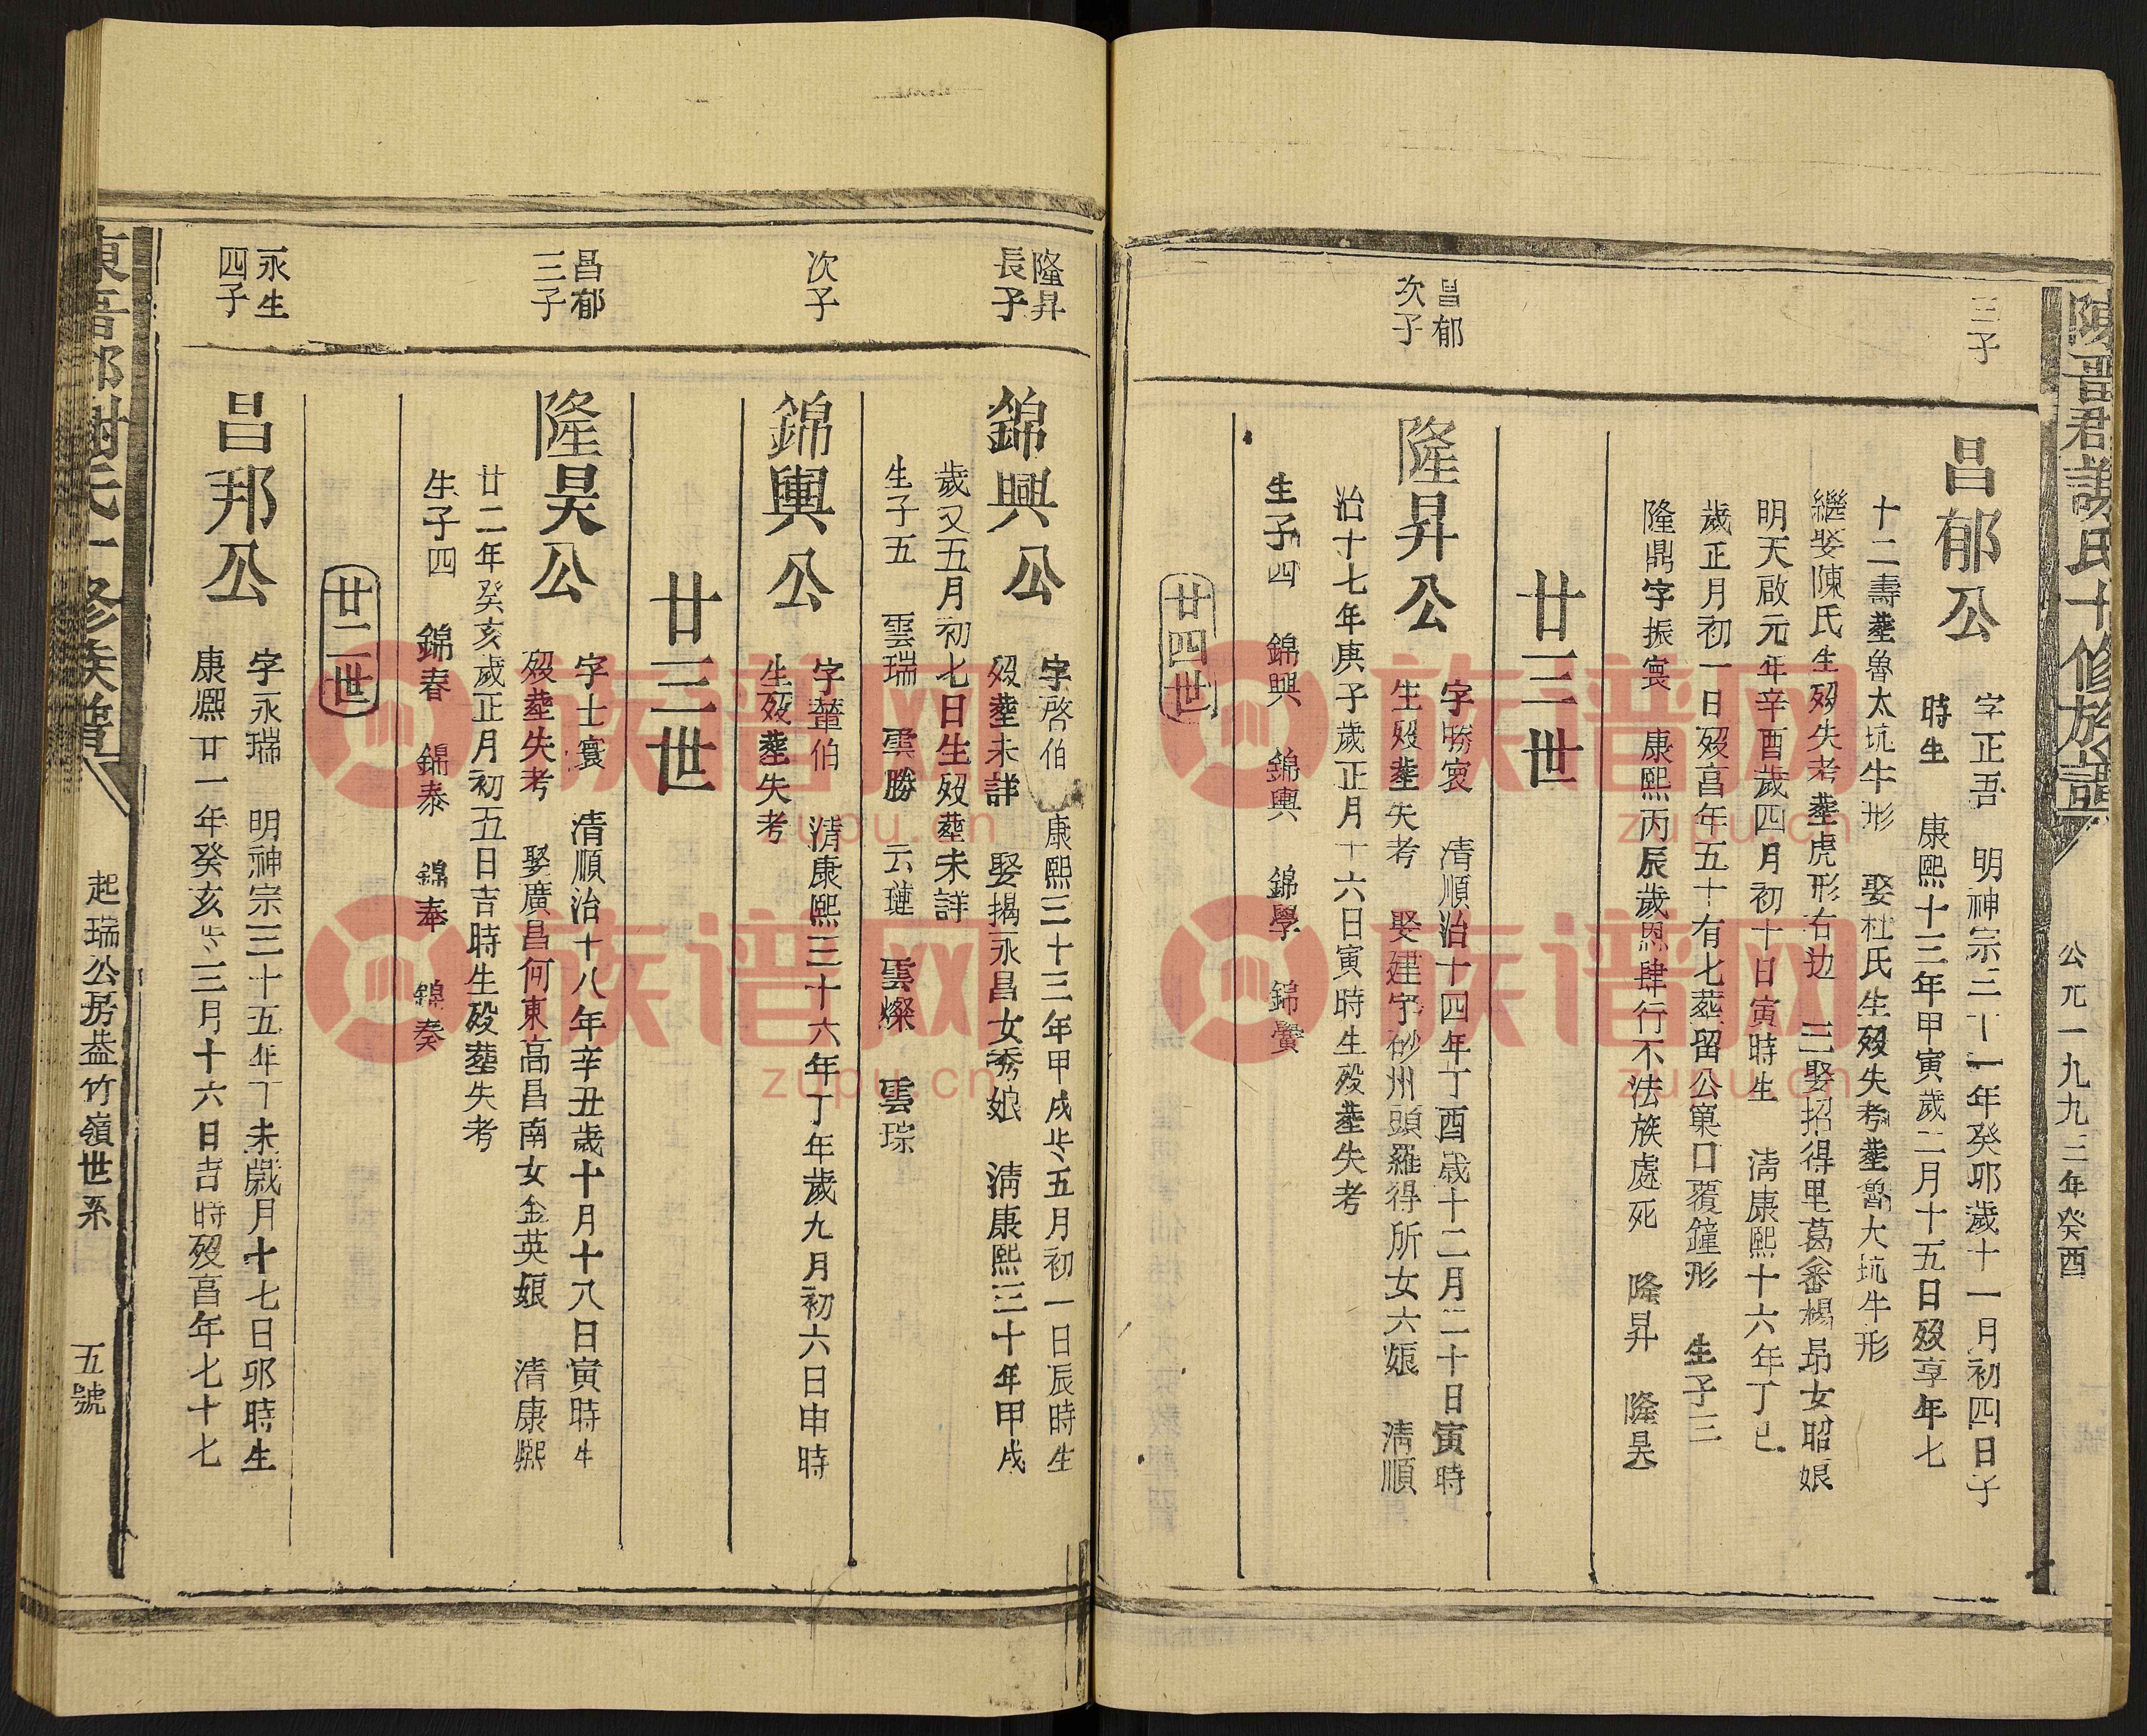 公元一九九三年癸酉
三子
昌郁公
字正吾 明神宗三十一年癸卯歲十一月初四日子
時生 康熙十三年甲寅歲二月十五日歿享年七
十二壽塟魯太坑牛形 娶杜氏生歿失考塟魯大坑牛形
繼娶陳氏生歿失考塟虎形右边 三娶招得里葛畲楊昂女昭娘
明天啟元年辛酉歲四月初十日寅時生 清康熙十六年丁巳
歲正月初一日歿亯年五十有七塟留公窠口覆鐘形 生子三
隆鼎字振寰 康熙丙辰歲恩肆行不法族處死 隆昇 隆昊
廿三世
昌郁
次子
隆昇公
字勝寰 清順治十四年丁酉歲十二月二十日寅時
生歿塟失考 娶建宁砂州頭羅得所女六娘 清順
治十七年庚子歲正月十六日寅時生歿塟失考
生子四 錦興 錦輿 錦學 錦黌
廿四世
隆昇
長子
錦興公
字啓伯 康熙三十三年甲戌歲五月初一日辰時生
歿塟未詳 娶揭永昌女秀娘 清康熙三十年甲戌
歲又五月初七日生歿塟未詳
生子五 雲瑞 雲勝 云璉 雲燦 雲琮
次子
錦輿公
字輦伯 清康熙三十六年丁年歲九月初六日申時
生歿塟失考
廿三世
昌郁
三子
隆昊公
字士寰 清順治十八年辛丑歲十月十八日寅時生
歿塟失考 娶廣昌何東高昌南女金英娘 清康熙
廿二年癸亥歲正月初五日吉時生歿塟失考
生子四 錦春 錦泰 錦奉 錦奏
廿二世
永生
四子
昌邦公
字永瑞 明神宗三十五年丁未歲月十七日卯時生
康熙廿一年癸亥歲三月十六日吉時歿亯年七十七
起瑞公房葢竹嶺世系
五號
族谱网
zupu.cn
族谱网
zupu.cn
族谱网
zupu.cn
族谱网
zupu.cn